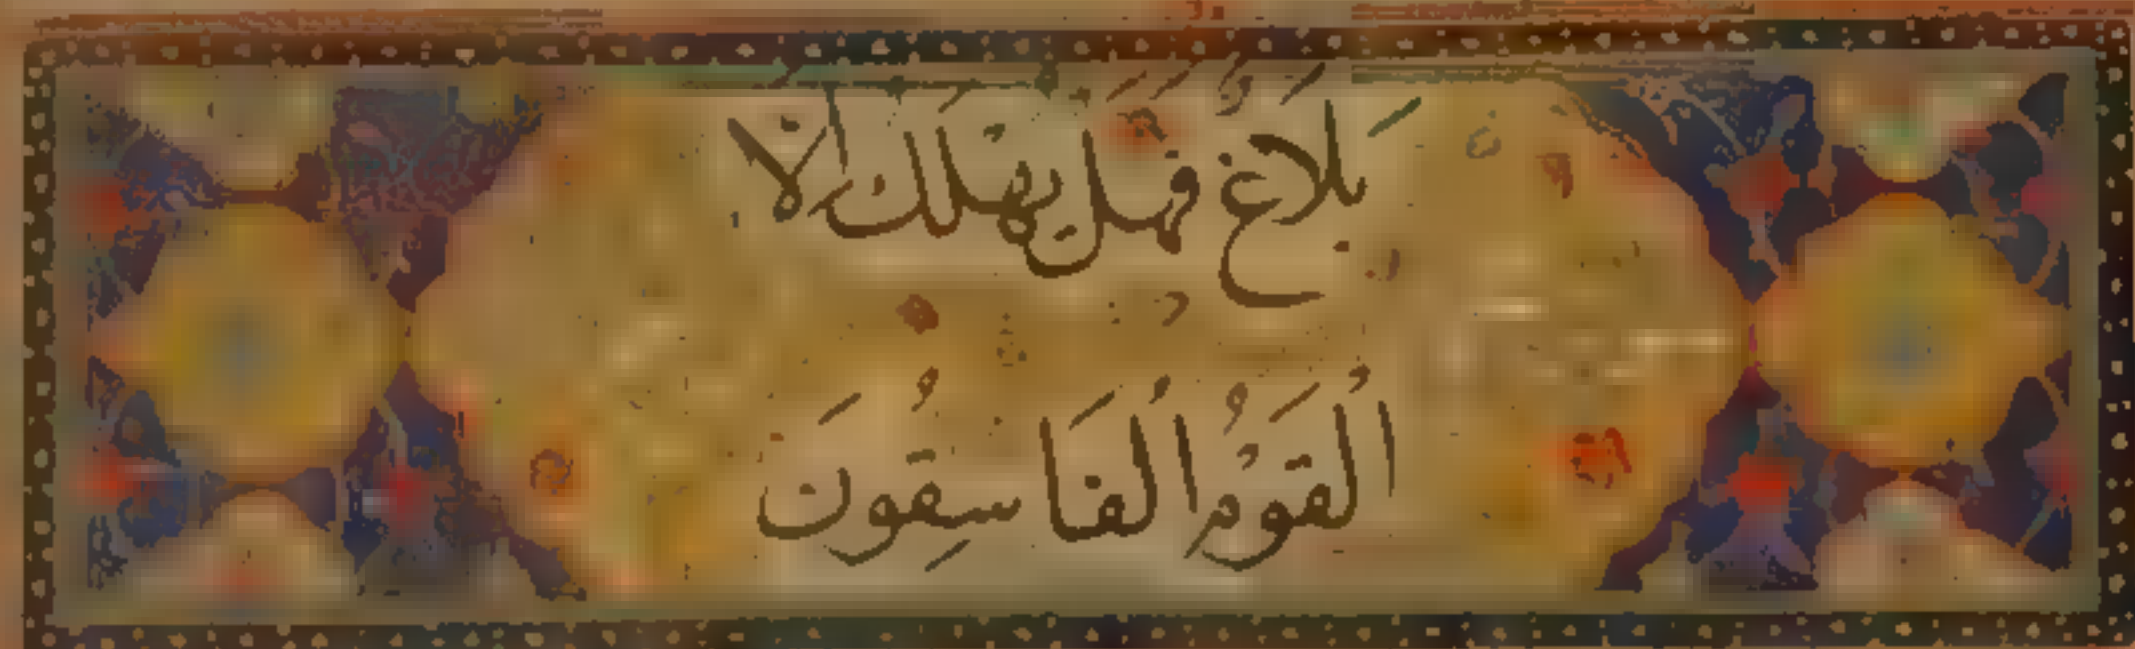 بَلَاغٌ فَهَلْ يُهْلَكُ إِلَّا
الْقَوْمُ الْفَاسِقُونَ